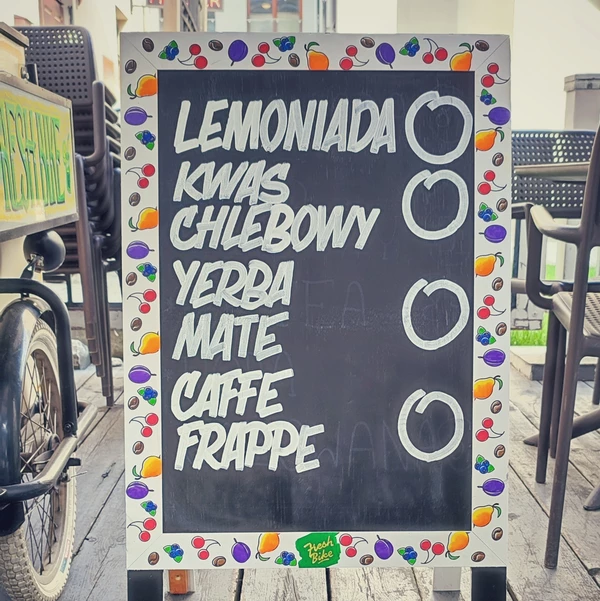 LEMONIADA
KWAS
CHLEBOWY
YERBA
MATE
CAFFE
FRAPPE
Fresh
Bike